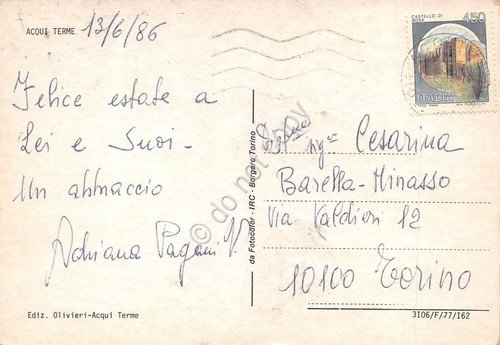 ACQUI TERME 13/6/86
Felice estate a
Lei e Suoi.
Un abbraccio
Adriana Pagani
Ediz. Olivieri-Acqui Terme
da Fotocolor - IRC - Borgaro Torino
CASTELLO DI
450
ITALIA
Cesarina
Barella-Minasso
Via Valdieri 12
10100 Torino
3106/F/77/162
do not copy